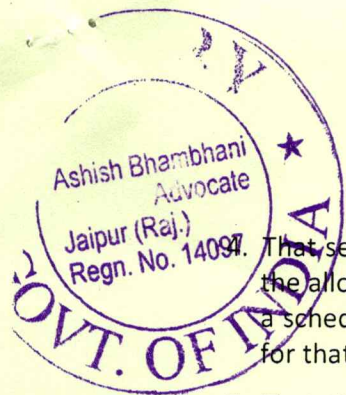 Ashish Bhambhani
Advocate
Jaipur (Raj.)
Regn. No. 14097
GOVT. OF INDIA
4. That se
the allo
a sched
for that